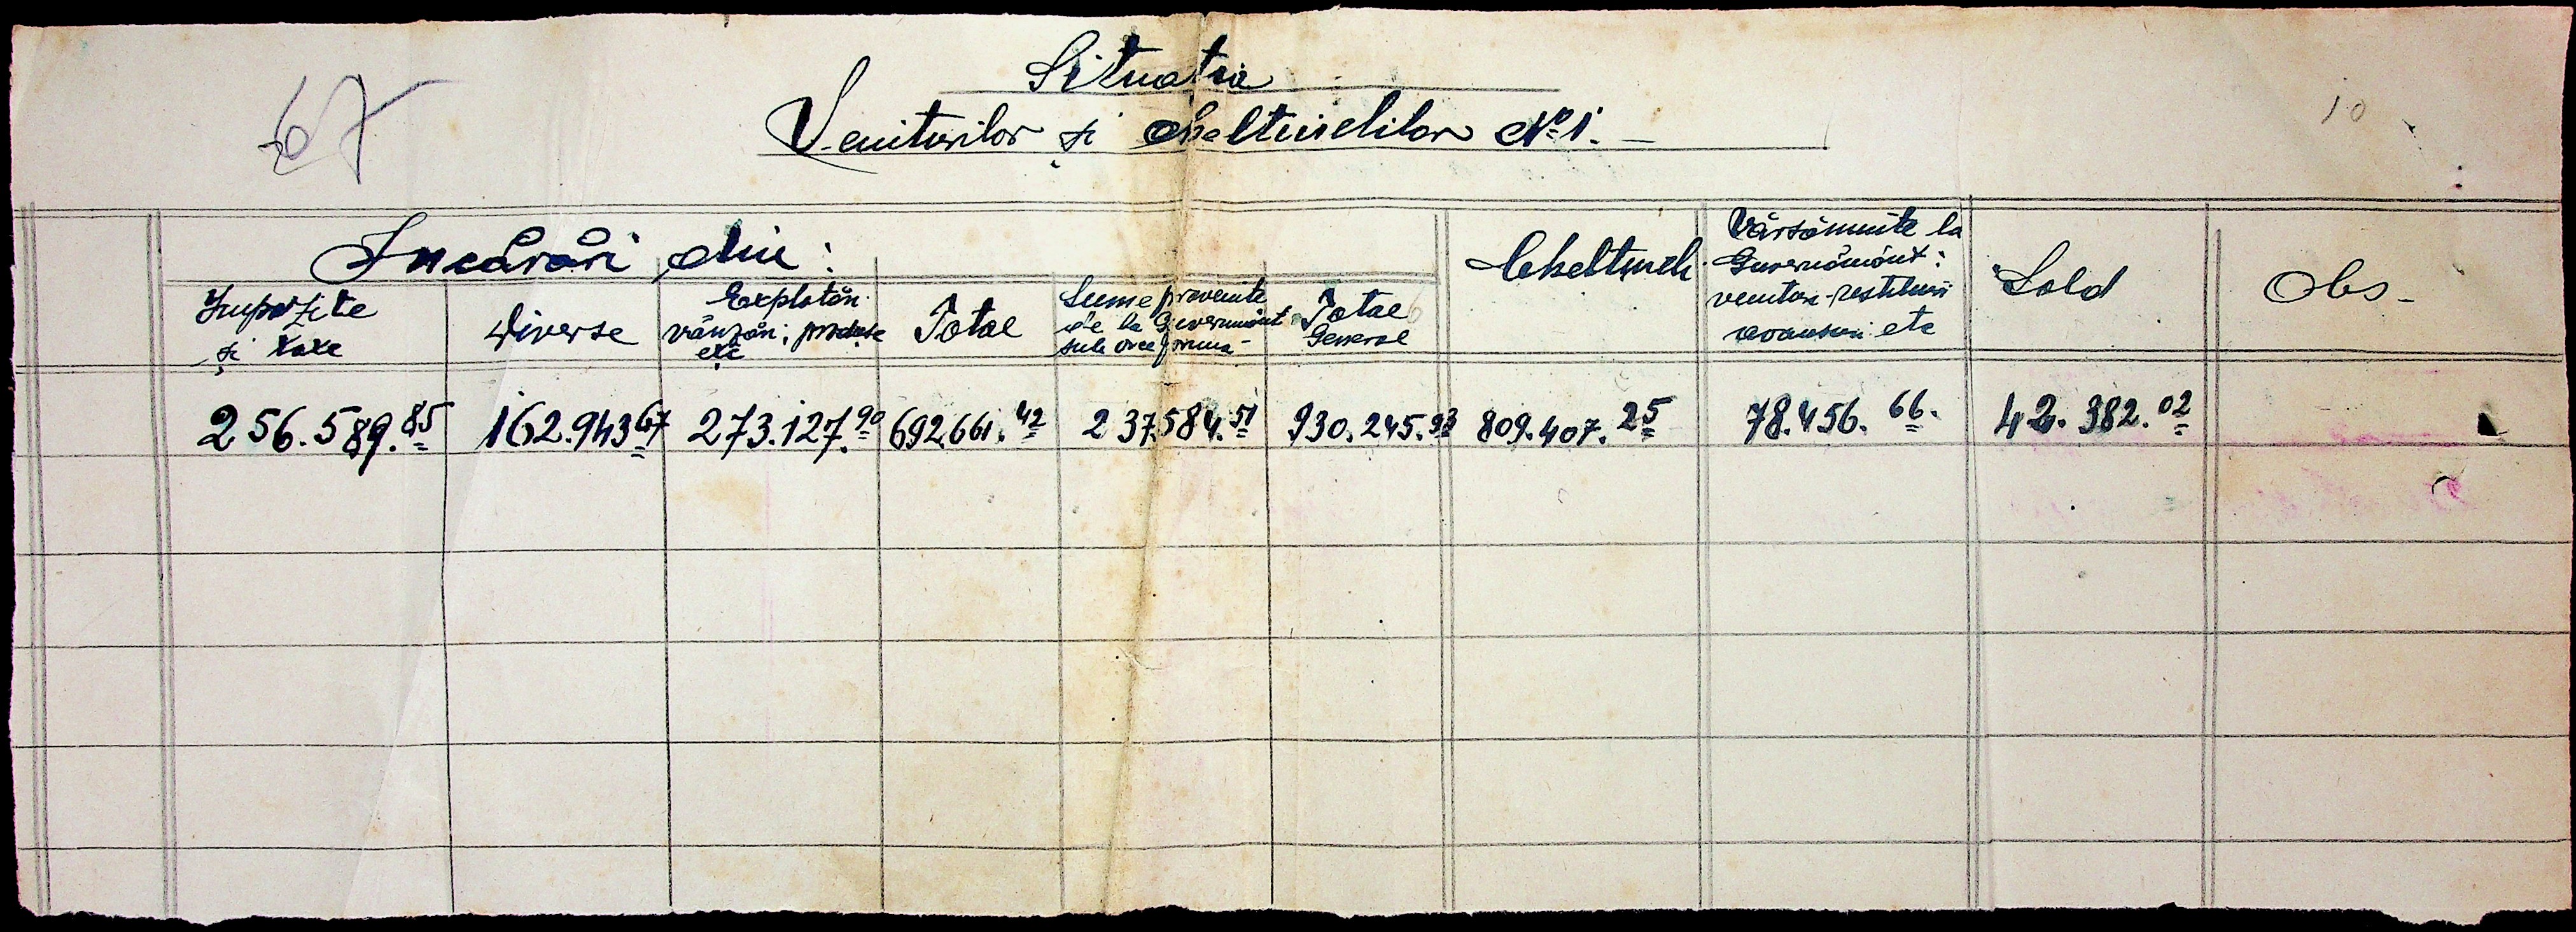 Situatia
Veniturilor și cheltuielilor No 1. –
67
10
Incasări din:
Impozite
și taxe
Diverse
Explotări
vânzări, produse
etc
Total
Sume provenite
de la Guvernămînt
sub orce formă
Total
General
Cheltueli
Vărsăminte la
Guvernământ:
venituri-restituiri
avansuri etc
Sold
Obs –
256.589.85
162.943 67
273.127.90
692.661.42
237.584.51
930.245.93
809.407.25
78.456.66.
42.382.02